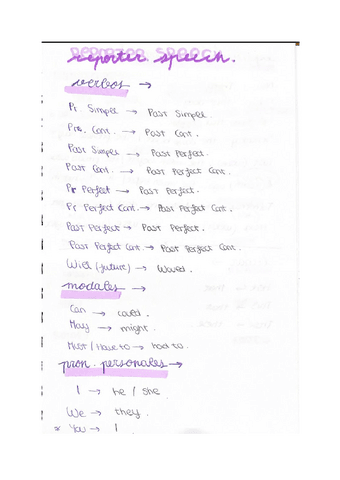 reporter speech.
verbos →
Pr. Simple → Past Simple.
Pre. Cont. → Past Cont.
Past Simple → Past Perfect.
Past Cont. → Past Perfect Cont.
Pr Perfect → Past Perfect.
Pr Perfect Cont. → Past Perfect Cont.
Past Perfect → Past Perfect.
Past Perfect Cont. → Past Perfect Cont.
Will (future) → Would.
modales →
Can → could.
May → might.
Must / Have to → had to.
pron. personales →
I → he / she.
We → they.
* You → I